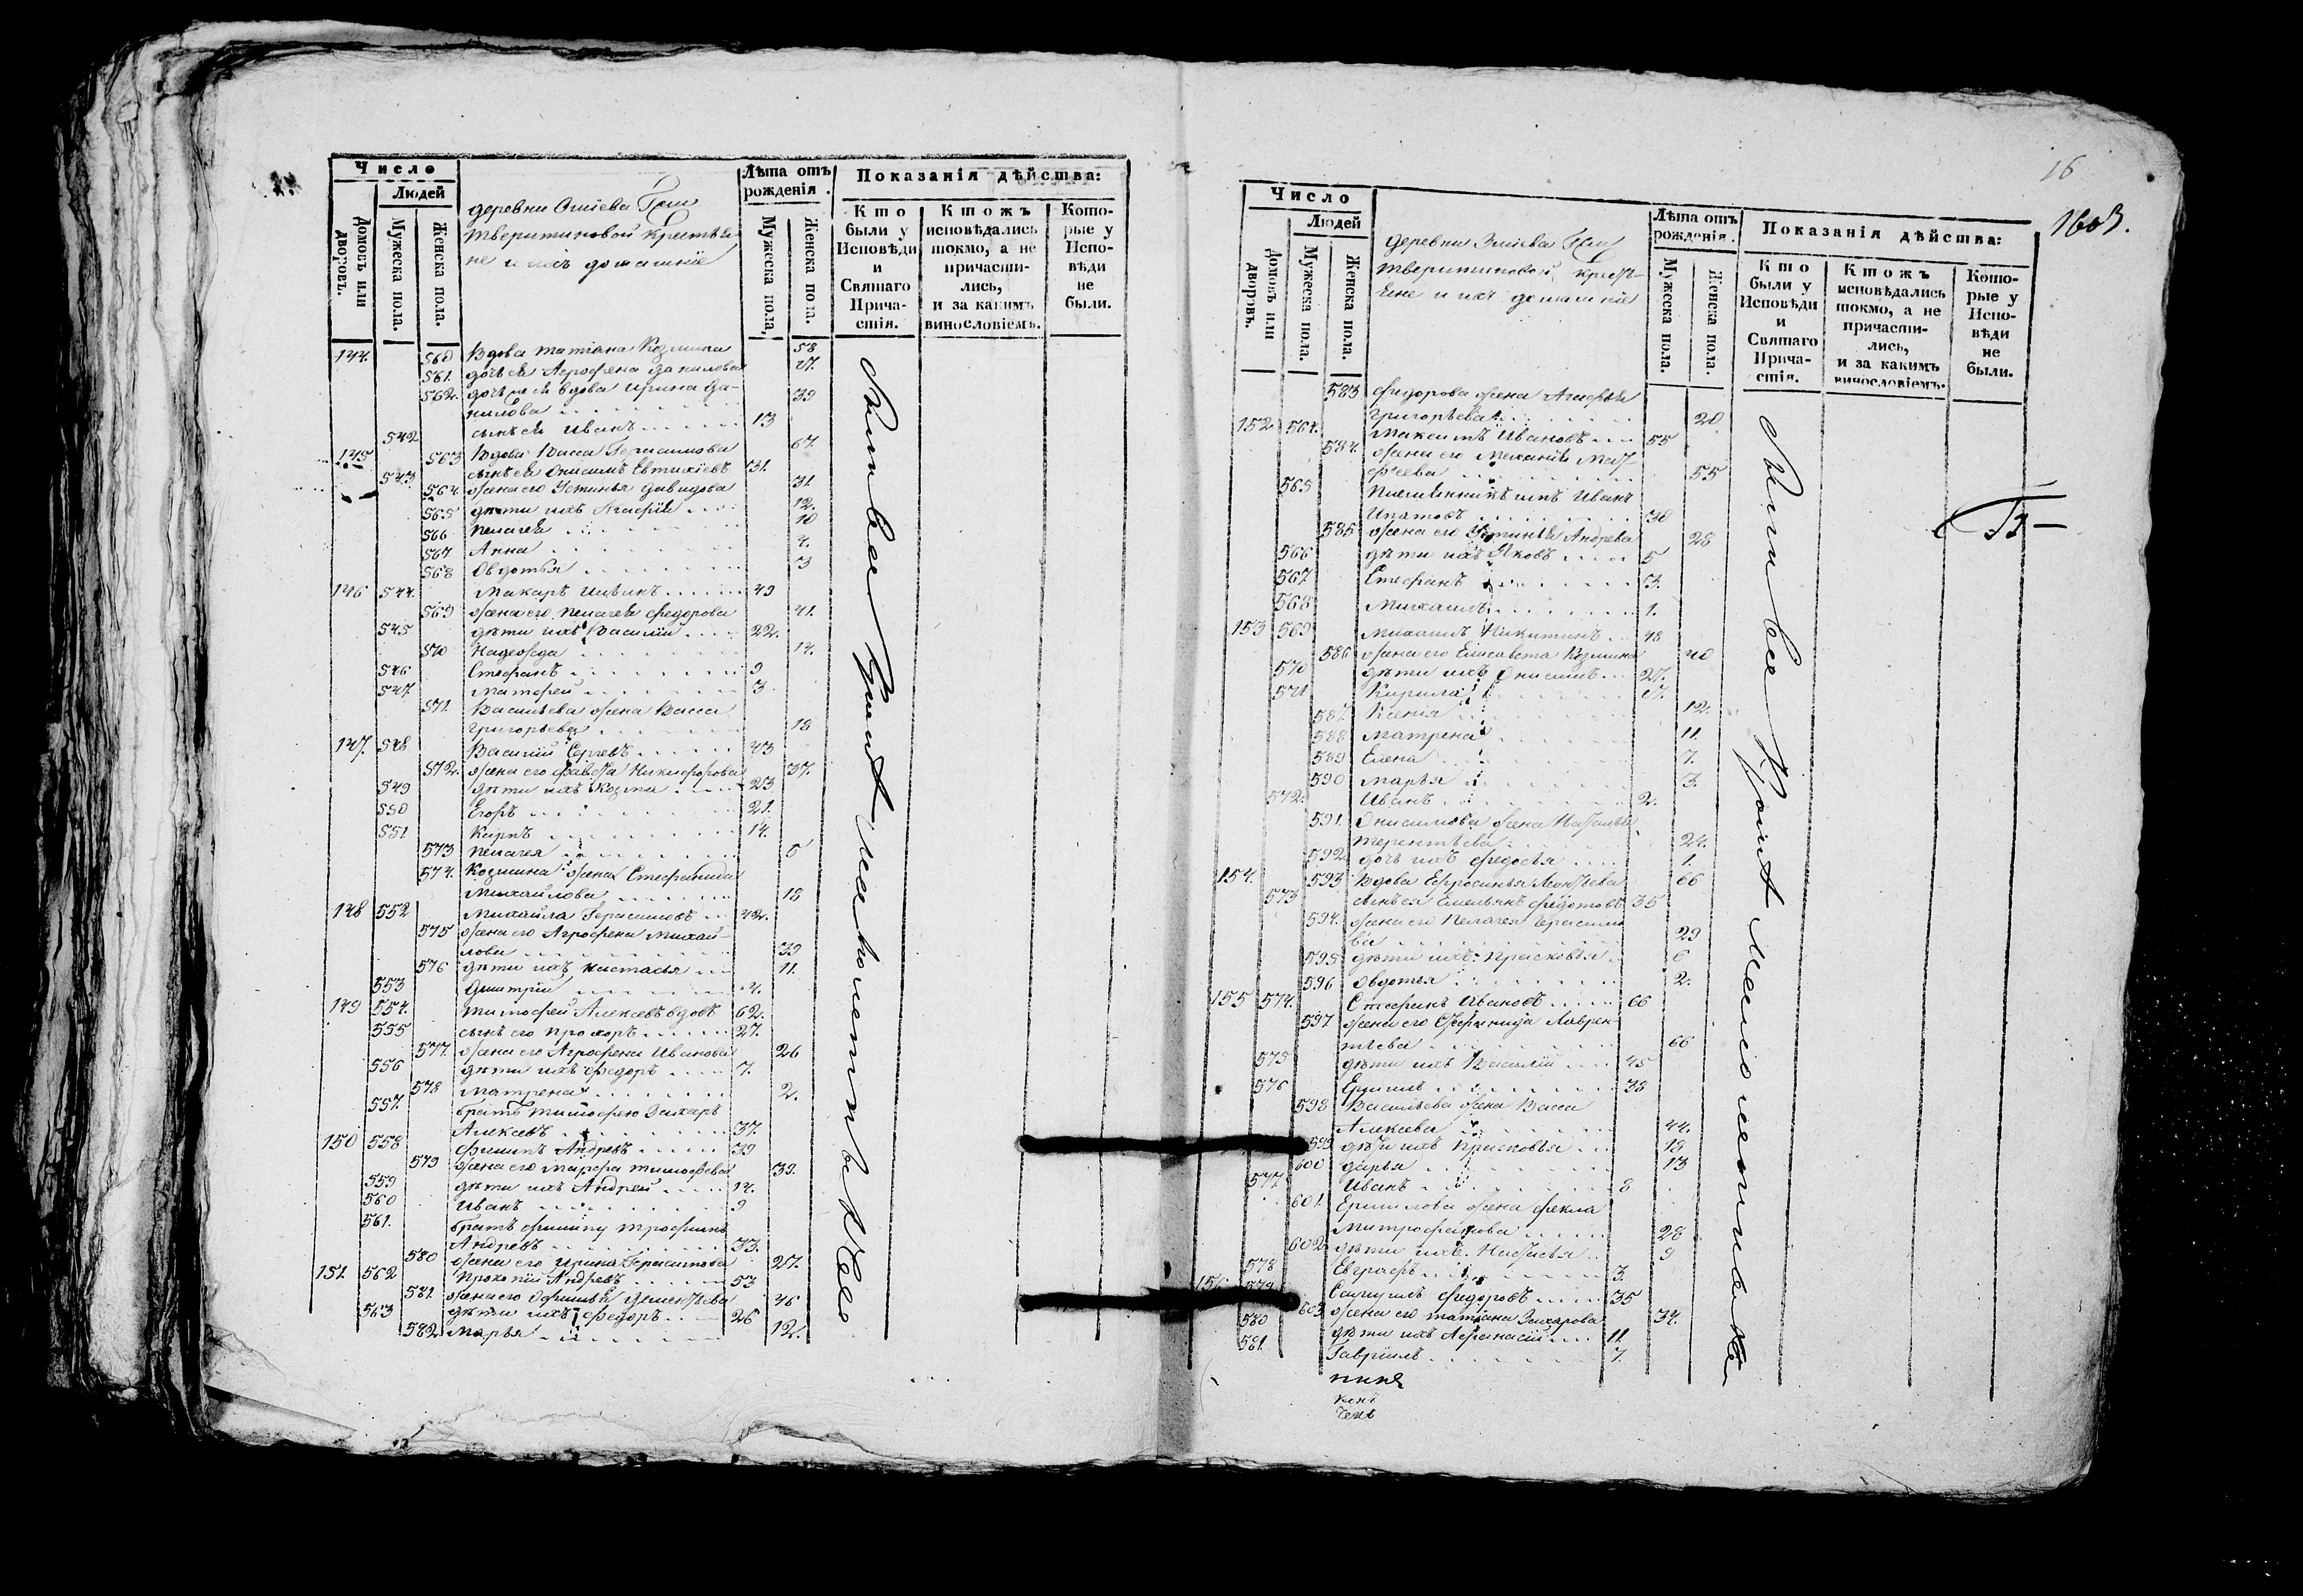 Число
Людей
Домовъ или дворовъ.
Мужеска пола.
Женска пола.
деревни
Тверитиновой крестья
не и ихъ домашніе
Лѣта отъ рожденія.
Мужеска пола.
Женска пола.
Показанія дѣйства:
Кто были у Исповѣди и Святаго Причастія.
Ктожъ исповѣдались токмо, а не причастились, и за какимъ винословіемъ.
Которые у Исповѣди не были.
144. 560 Вдова Татіана Козмина 58
561. дочь ея Агрофена Данилова 17.
562. дочь ея вдова Ирина Да-
нилова 39
542 сынъ ея Иванъ 13
145 563 Вдова Васса Герасимова 67.
543 сынъ ея Онисимъ Евтихіевъ 31.
564. жена его Устинья Давидова 31.
565 дѣти ихъ Агафія 12.
566 Пелагея 10
567 Анна 4.
568 Овдотья 3
146 544. Макаръ 49
569 жена его Пелагея Федорова 41.
545 дѣти ихъ Василіи 22.
570 Надежда 14.
546 Стефанъ 9
547. Матфеи 3
571. Васильева жена Васса
Григорьева 18
147. 548 Василіи Сергевъ 43
572. жена его Никифорова 37.
549 дѣти ихъ Козма 23
550 Егоръ 21.
551 Карпъ 14.
573 Пелагея 5
574. Козмина жена Стефанида
Михайлова 18
148 552 Михайла Герасимовъ 42.
575 жена его Агрофена Михай-
лова 39
576 дѣти ихъ Настасья 11.
553 Дмитріи 4.
149 554. Тимофеи Алексевъ вдовъ 62.
555 сынъ его Прохоръ 27.
577. жена его Агрофена Иванова 26
556 дѣти ихъ Федоръ 7.
578 Матрена 2.
557. братъ Тимофею Захаръ
Алексевъ 37.
150 558 Филипъ Андревъ 39
579 жена его Марфа Тимофева 39.
559 дѣти ихъ Андреи 14.
560 Иванъ 9
561. братъ Филипу Трофимъ
Андревъ 33.
580 жена его Ирина Герасимова 27.
151. 562 Прокопіи Андревъ 53
581. жена его 46
563 дѣти ихъ Федоръ 26
582 Марья 12.
16
1603.
Число
Людей
Домовъ или дворовъ.
Мужеска пола.
Женска пола.
деревни
Тверитиновой крестья
не и ихъ домашніе
Лѣта отъ рожденія.
Мужеска пола.
Женска пола.
Показанія дѣйства:
Кто были у Исповѣди и Святаго Причастія.
Ктожъ исповѣдались токмо, а не причастились, и за какимъ винословіемъ.
Которые у Исповѣди не были.
583 Федорова жена Агафья
Григорьева 20
152 564. Максимъ Ивановъ 55
584. жена его Меланія Мат-
феева 55
565 Племянникъ имъ Иванъ
Ипатовъ 30
585 жена его Устинья Андрева 28
566 дѣти ихъ Яковъ 5
567 Стефанъ 3.
568 Михаилъ 1.
153 569 Михаилъ Никитинъ 48
586 жена его Елисавета Козмина 40
570 дѣти ихъ Онисимъ 27.
571 Кирила 17.
587. Ксенія 12.
588 Матрена 11
589 Елена 7.
590 Марья 3.
572. Иванъ 2.
591. Онисимова жена Наталья
Терентьева 24.
592 дочь ихъ Федосья 1.
154. 593 Вдова Ефросинья Леонтьева 66
573 сынъ ея Емельянъ Федотовъ 35
594. жена его Пелагея Герасимо
ва 29
595 дѣти ихъ Прасковья 6
596 Овдотья 2.
155 574. Стефанъ Ивановъ 66
597 жена его Стефанида Лаврен
тьева 66
575 дѣти ихъ Василіи 45
576 Ермилъ 38
598 Васильева жена Васса
Алексева 44.
599 дѣти ихъ Прасковья 19
600 Дарья 13
577 Иванъ 8
601. Ермилова жена Фекла
Митрофанова 28
602 дѣти ихъ Настасья 9
578 Евграфъ 3.
156 579 Самуилъ Федоровъ 35
603 жена его Татіана Захарова 34.
580 дѣти ихъ Афанасіи 11.
581. Гавріилъ 7.